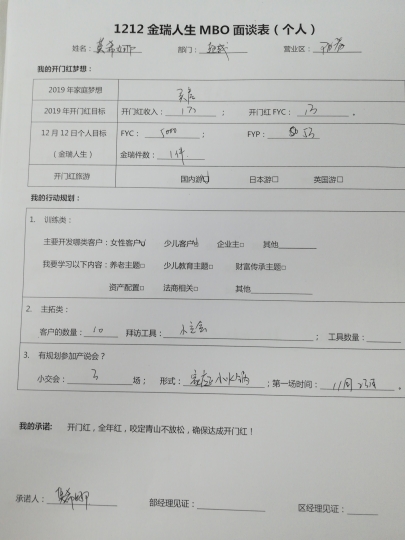 1212 金瑞人生 MBO 面谈表（个人）
姓名： 部门： 营业区：
我的开门红梦想：
2019 年家庭梦想 买房
2019 年开门红目标 开门红收入： 1万 ； 开门红 FYC： 1万 。
12 月 12 日个人目标 FYC： 5000 ； FYP：
（金瑞人生） 金瑞件数： 1件
开门红旅游 国内游☑ 日本游□ 英国游□
我的行动规划：
1. 训练类：
主要开发哪类客户：女性客户☑ 少儿客户☑ 企业主□ 其他
我要学习以下内容：养老主题□ 少儿教育主题□ 财富传承主题□
资产配置□ 法商相关□ 其他
2. 主拓类：
客户的数量： 10 拜访工具： ； 工具数量：
3. 有规划参加产说会？
小交会： 3 场； 形式： 家庭小火锅 ；第一场时间：
我的承诺： 开门红，全年红，咬定青山不放松，确保达成开门红！
承诺人： 部经理见证： 区经理见证：